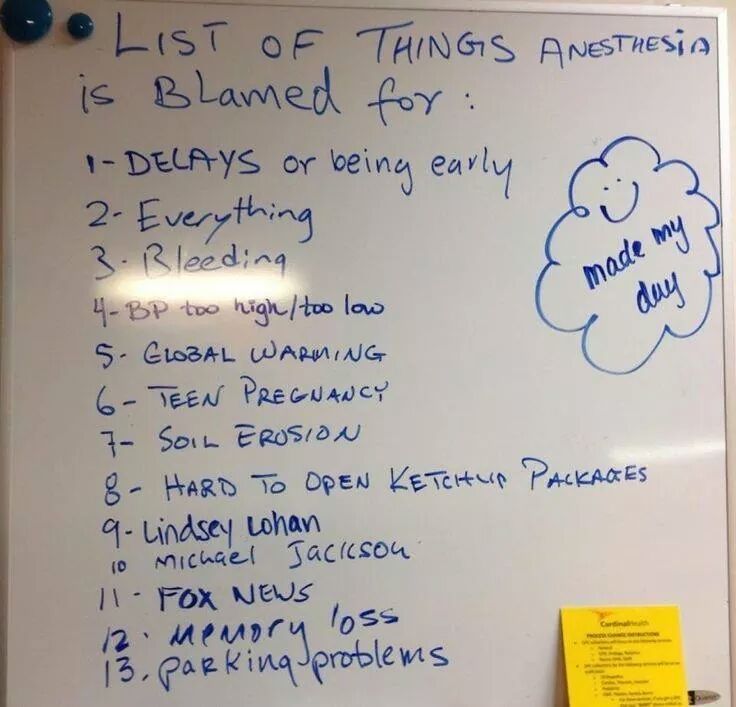 LIST OF THINGS ANESTHESIA
is BLamed for :
1- DELAYS or being early
2- Everything
3- Bleeding
4- BP too high/too low
5- GLOBAL WARMING
6- TEEN PREGNANCY
7- SOIL EROSION
8- HARD TO OPEN KETCHUP PACKAGES
9- Lindsey Lohan
10 MICHAEL JACKSON
11- FOX NEWS
12. MEMORY loss
13. parking problems
made my
day
CardinalHealth
PROCESS CHANGE INSTRUCTIONS